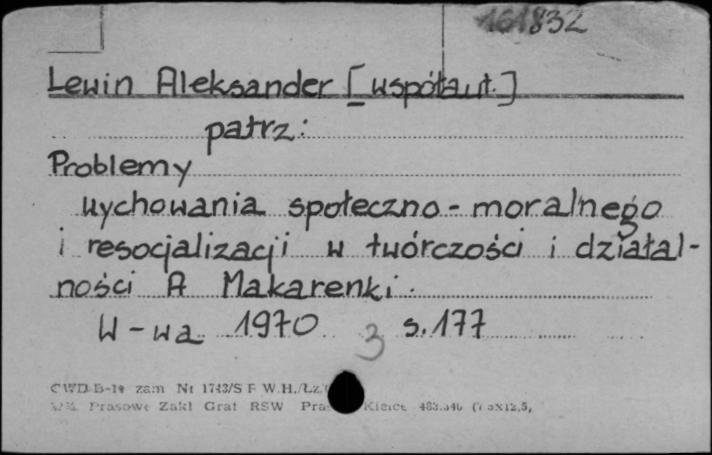 161832
Lewin Aleksander [współaut.]
patrz:
Problemy
wychowania społeczno-moralnego
i resocjalizacji w twórczości i działal-
ności A Makarenki.
W-wa 1970 3 s. 177
CWD B-1 zam Nr 1743/S F W.H./Łz.
Prasowe Zakł Graf RSW Kielce